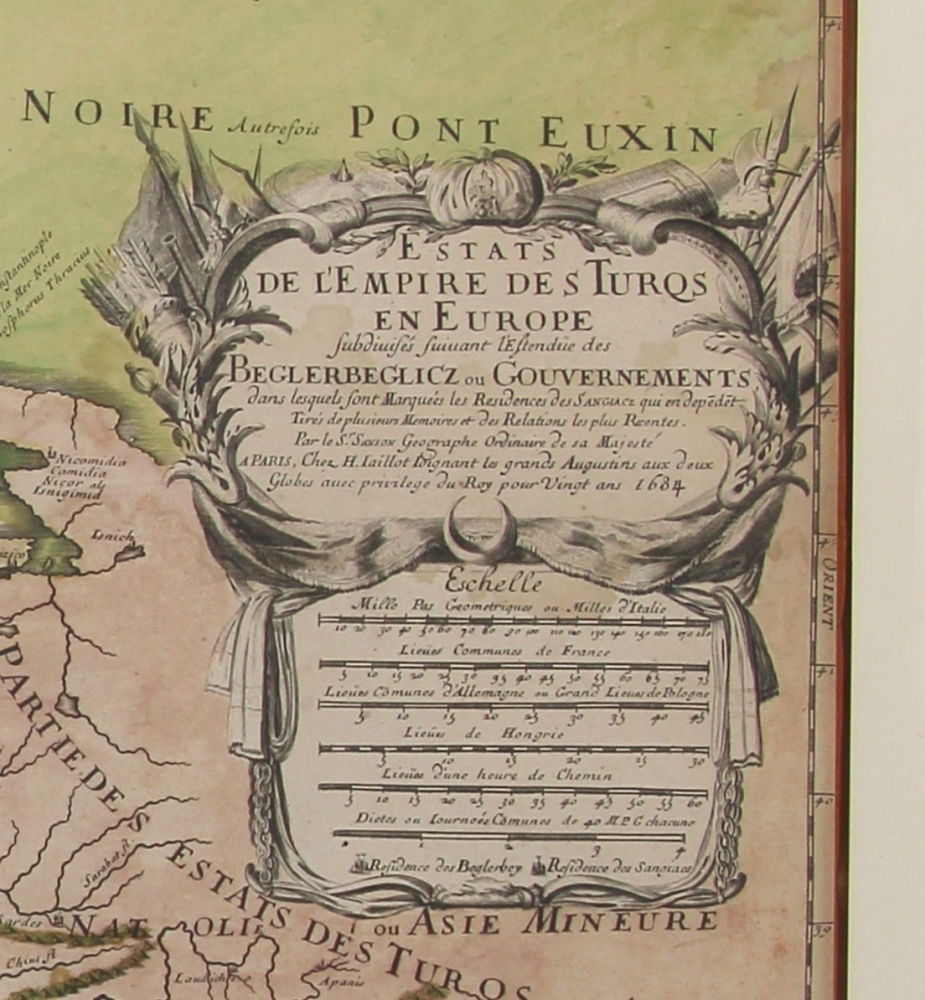 NOIRE Autrefois PONT EUXIN
nstantinople
la Mer Noire
osphorus Thracius
ESTATS
DE L'EMPIRE DES TURQS
EN EUROPE
subdivisés suivant l'Estendüe des
BEGLERBEGLICZ ou GOUVERNEMENTS
dans lesquels sont Marquées les Residences des SANGIACZ qui en depēdēt
Tirés de plusieurs Memoires et des Relations les plus Recentes.
Par le Sr. Sanson Geographe Ordinaire de sa Majesté
A PARIS, Chez H. Iaillot Ioignant les grands Augustins aux deux
Globes avec privilege du Roy pour Vingt ans 1684
Nicomidia
Comidia
Nicor als
Isnigimid
Isnich
Eschelle
Mille Pas Geometriques ou Milles d'Italie
Lieües Communes de France
5 10 15 20 25 30 35 40 45 50 55 60 65 70 75
Lieües Cōmunes d'Allemagne ou Grand Lieues de Pologne
5 10 15 20 25 30 35 40 45
Lieües de Hongrie
5 10 15 20 25 30
Lieües d'une heure de Chemin
5 10 15 20 25 30 35 40 45 50 55 60
Dietes ou Iourneés Cōmunes de 40 M.P.G chacune
1 2 3 4
Residence des Beglerbey Residence des Sangiacz
ORIENT
41
40
39
PARTIE DES
ESTATS DES TURQS
Sarabat fl.
Sardes
NATOLIE ou ASIE MINEURE
Chius fl
Laudichia
Apanis